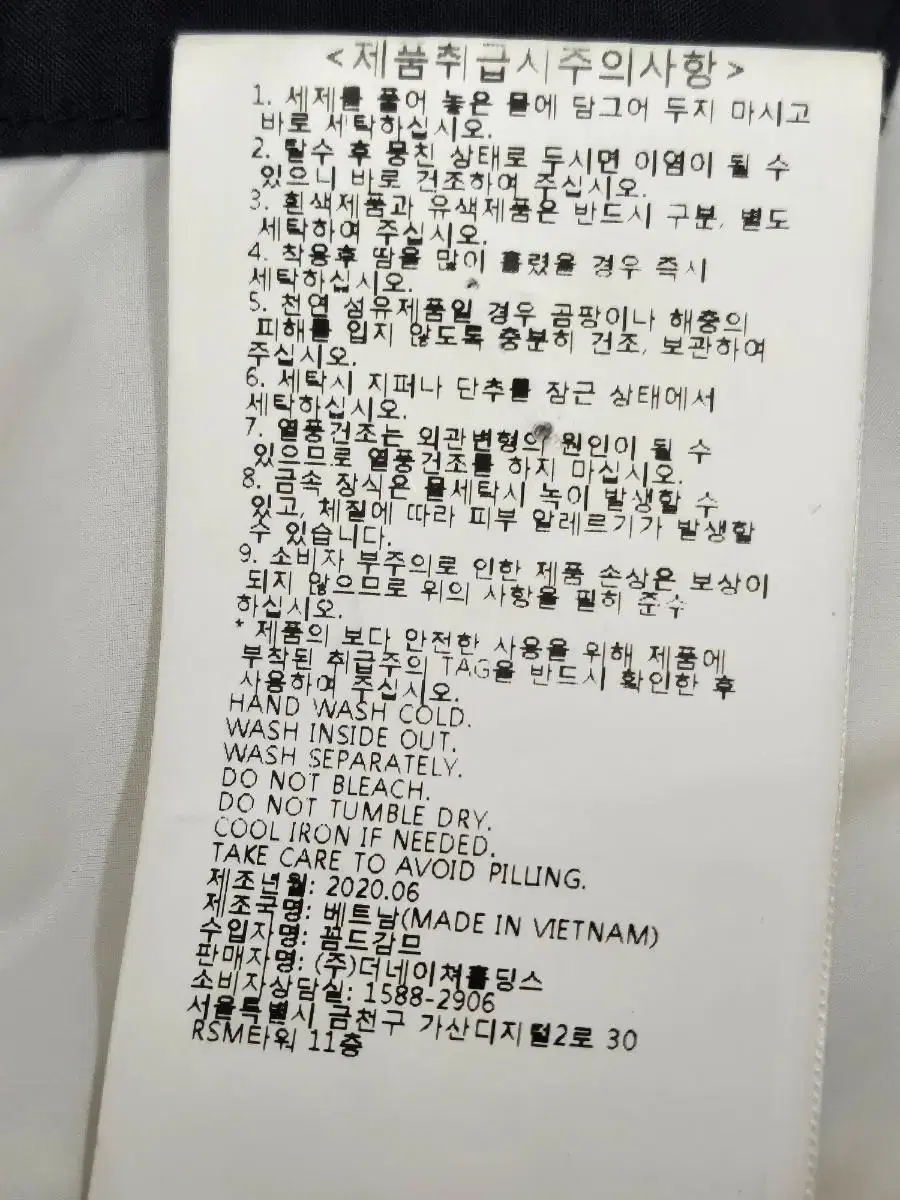 <제품취급시주의사항>
1. 세제를 풀어 놓은 물에 담그어 두지 마시고
바로 세탁하십시오.
2. 탈수 후 뭉친 상태로 두시면 이염이 될 수
있으니 바로 건조하여 주십시오.
3. 흰색제품과 유색제품은 반드시 구분, 별도
세탁하여 주십시오.
4. 착용후 땀을 많이 흘렸을 경우 즉시
세탁하십시오.
5. 천연 섬유제품일 경우 곰팡이나 해충의
피해를 입지 않도록 충분히 건조, 보관하여
주십시오.
6. 세탁시 지퍼나 단추를 잠근 상태에서
세탁하십시오.
7. 열풍건조는 외관변형의 원인이 될 수
있으므로 열풍건조를 하지 마십시오.
8. 금속 장식은 물세탁시 녹이 발생할 수
있고, 체질에 따라 피부 알레르기가 발생할
수 있습니다.
9. 소비자 부주의로 인한 제품 손상은 보상이
되지 않으므로 위의 사항을 필히 준수
하십시오.
* 제품의 보다 안전한 사용을 위해 제품에
부착된 취급주의 TAG을 반드시 확인한 후
사용하여 주십시오.
HAND WASH COLD.
WASH INSIDE OUT.
WASH SEPARATELY.
DO NOT BLEACH.
DO NOT TUMBLE DRY.
COOL IRON IF NEEDED.
TAKE CARE TO AVOID PILLING.
제조년월: 2020.06
제조국명: 베트남(MADE IN VIETNAM)
수입자명: 꼼드감므
판매자명: (주)더네이쳐홀딩스
소비자상담실: 1588-2906
서울특별시 금천구 가산디지털2로 30
RSM타워 11층